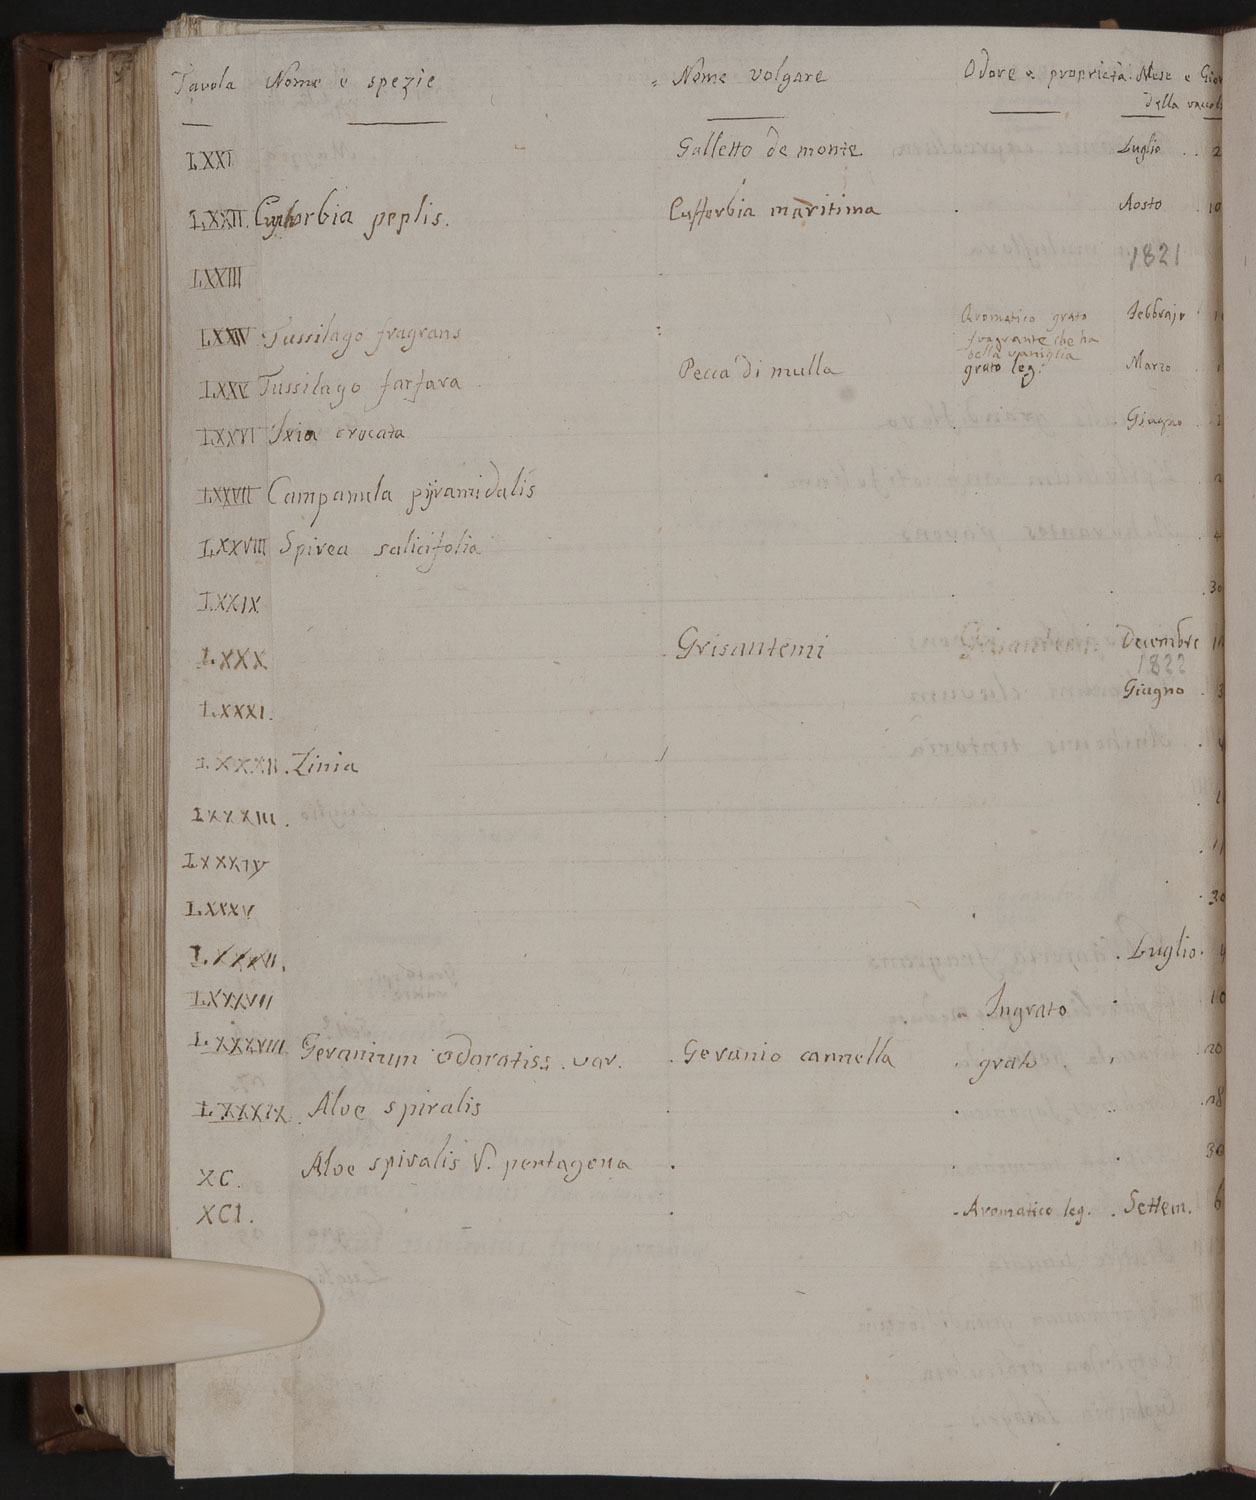 Tavola Nome e spezie Nome volgare Odore e proprietà. Mese e
della
LXXI Galletto de monte Luglio . . 2
LXXII. Euphorbia peplis. Eufforbia maritima Aosto . 10
LXXIII 1821
LXXIV Tussilago fragrans Aromatico grato Febbrajo
fragrante che ha
della vaniglia
LXXV Tussilago farfara Pecca di mulla grato leg. Marzo
LXXVI Ixia crocata Giugno
LXXVII Campanula pyramidalis
LXXVIII Spirea salicifolia 4
LXXIX 30
LXXX Grisantemi Decembre
1822
LXXXI. Giugno . 3
LXXXII. Zinia
LXXXIII.
LXXXIV 11
LXXXV 30
LXXXVI. Luglio.
LXXXVII Ingrato 10
LXXXVIII Geranium odoratiss. var. Geranio cannella grato 20
LXXXIX. Aloe spiralis 28
XC. Aloe spiralis V. pentagona 30
XCI. Aromatico leg. Settem. 6